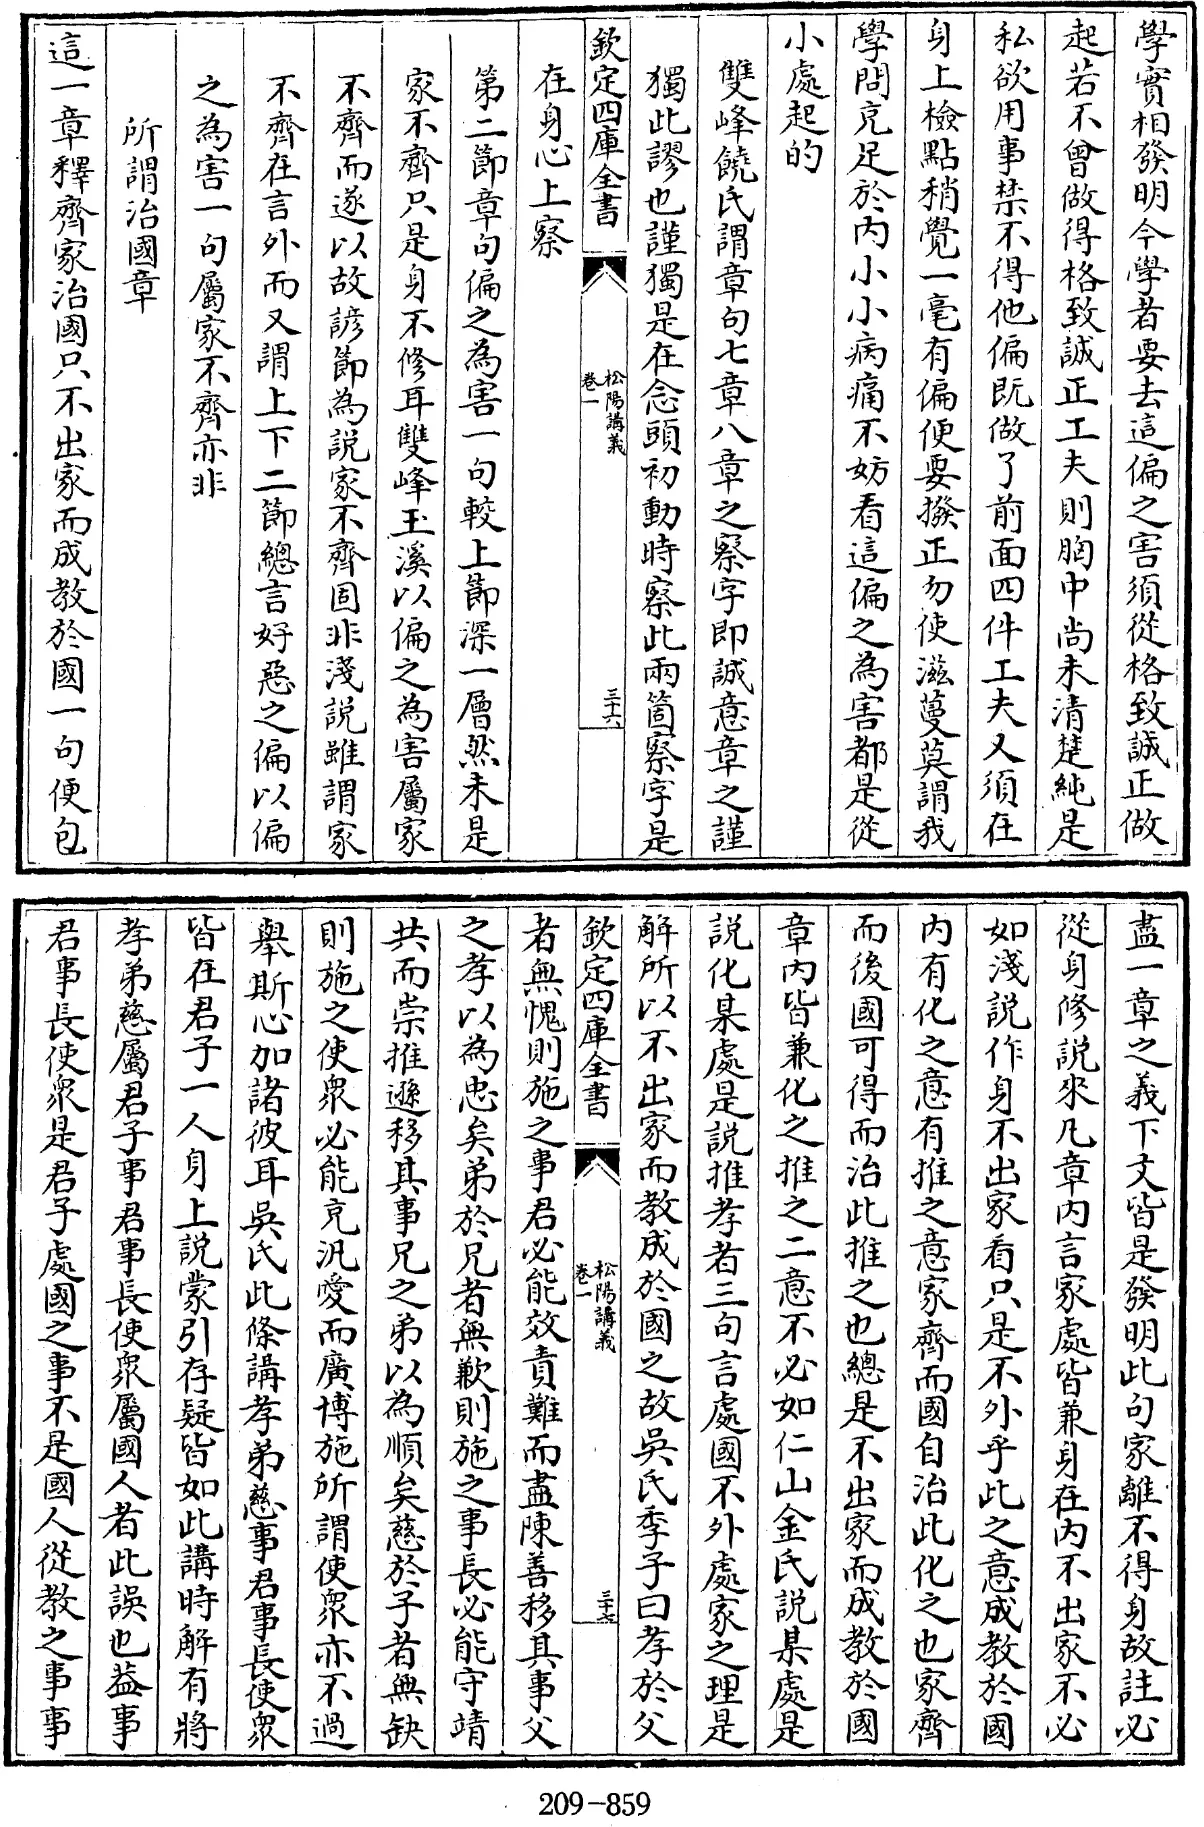 學實相發明今學者要去這偏之害須從格致誠正做
起若不曾做得格致誠正工夫則胸中尚未清楚純是
私欲用事禁不得他偏既做了前面四件工夫又須在
身上檢點稍覺一毫有偏便要撥正勿使滋蔓莫謂我
學問充足於内小小病痛不妨看這偏之為害都是從
小處起的
雙峰饒氏謂章句七章八章之察字即誠意章之謹
獨此謬也謹獨是在念頭初動時察此兩箇察字是
欽定四庫全書
松陽講義
卷一
三十六
在身心上察
第二節章句偏之為害一句較上節深一層然未是
家不齊只是身不修耳雙峰玉溪以偏之為害屬家
不齊而遂以故諺節為説家不齊固非淺説雖謂家
不齊在言外而又謂上下二節總言好惡之偏以偏
之為害一句屬家不齊亦非
所謂治國章
這一章釋齊家治國只不出家而成教於國一句便包
盡一章之義下文皆是發明此句家離不得身故註必
從身修説來凡章内言家處皆兼身在内不出家不必
如淺説作身不出家看只是不外乎此之意成教於國
内有化之意有推之意家齊而國自治此化之也家齊
而後國可得而治此推之也總是不出家而成教於國
章内皆兼化之推之二意不必如仁山金氏説某處是
説化某處是説推孝者三句言處國不外處家之理是
解所以不出家而教成於國之故吳氏季子曰孝於父
欽定四庫全書
松陽講義
卷一
三十七
者無愧則施之事君必能效責難而盡陳善移其事父
之孝以為忠矣弟於兄者無歉則施之事長必能守靖
共而崇推遜移其事兄之弟以為順矣慈於子者無缺
則施之使衆必能克汎愛而廣博施所謂使衆亦不過
舉斯心加諸彼耳吳氏此條講孝弟慈事君事長使衆
皆在君子一人身上説蒙引存疑皆如此講時解有將
孝弟慈屬君子事君事長使衆屬國人者此誤也葢事
君事長使衆是君子處國之事不是國人從教之事事
209-859